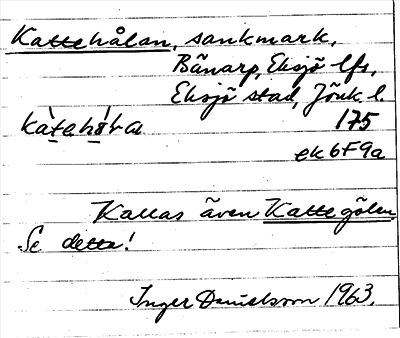 Kattehålan, sankmark,
Bänarp, Eksjö lfs,
Eksjö stad, Jönk. l.
kàtehó̱ra 175
ek 6F9a
Kallas även Kattegölen
Se detta!
Inger Danielsson 1963.